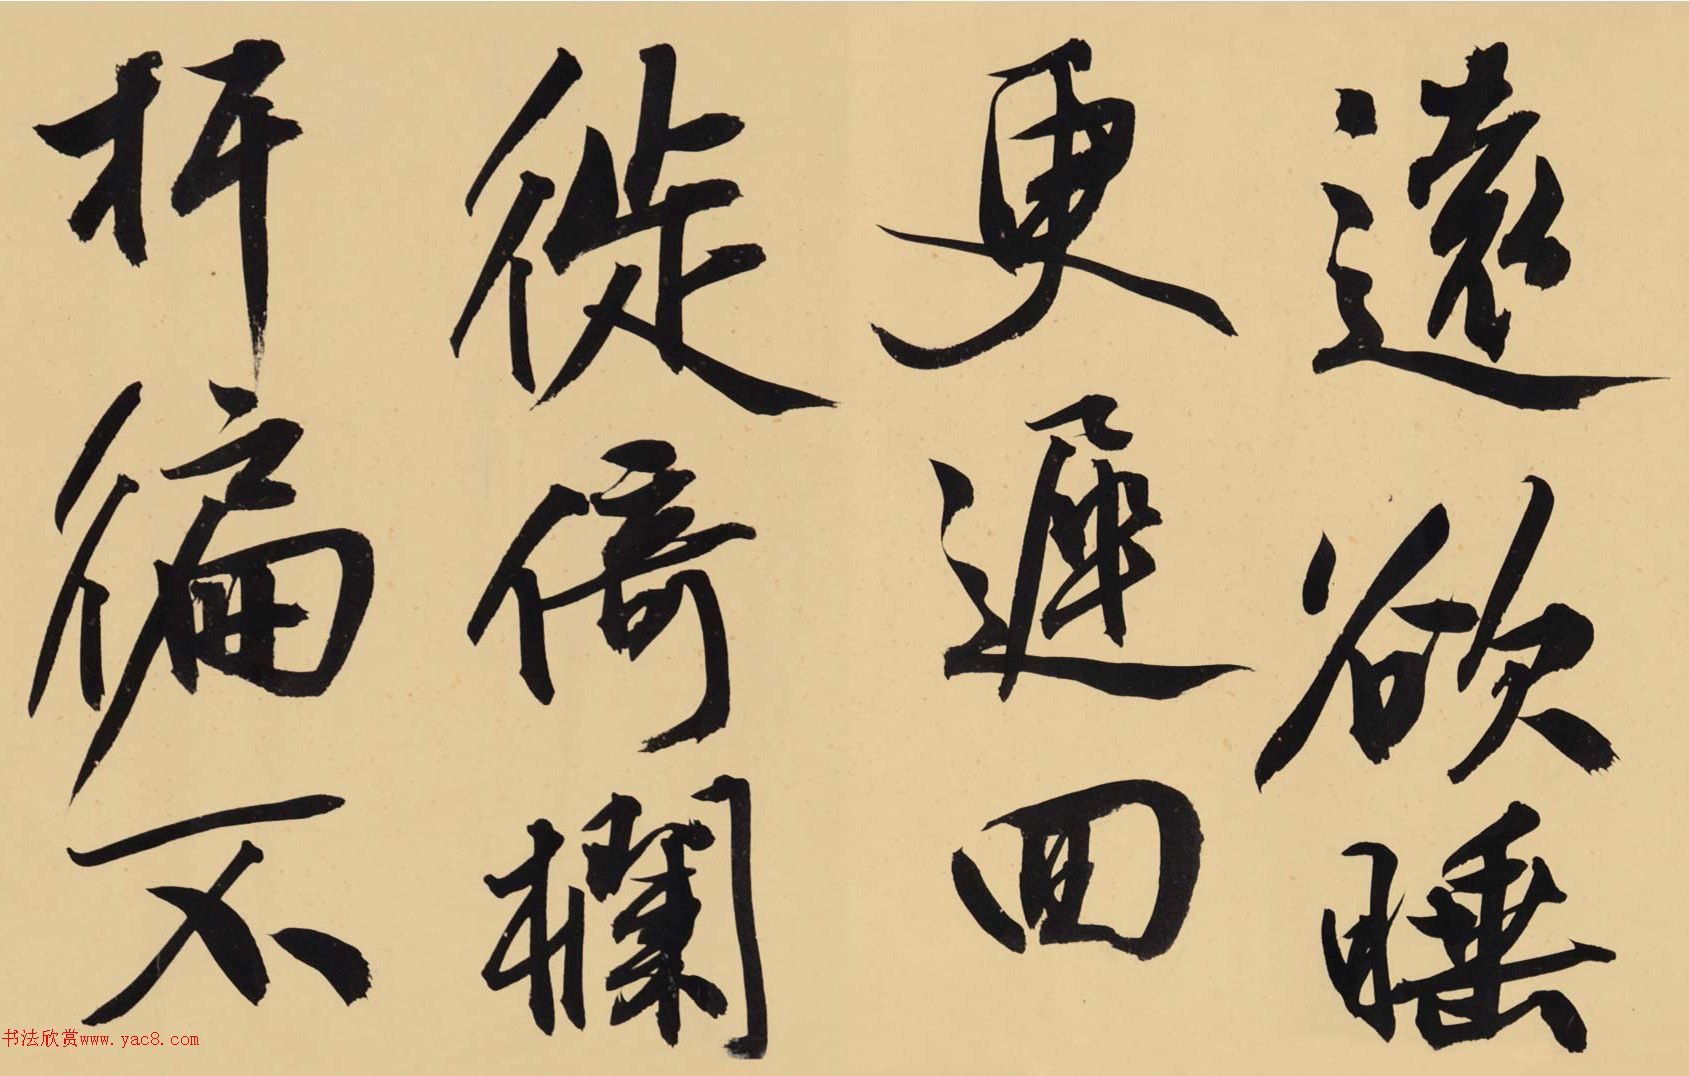 遠欲睡
更遲回
徙倚欄
拆徧不
书法欣赏www.yac8.com